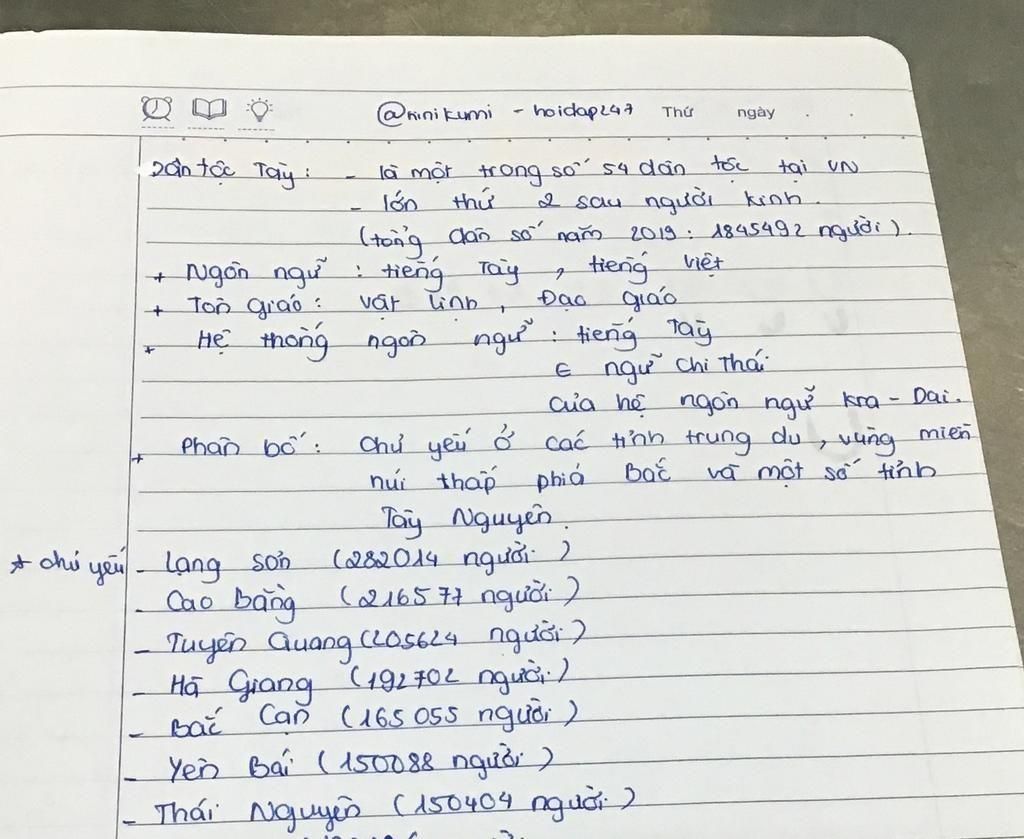 @ninikumi - hoidap247 Thứ ngày
Dân tộc Tày: - là một trong số 54 dân tộc tại VN
- lớn thứ 2 sau người kinh.
(tổng dân số năm 2019: 1845492 người).
+ Ngôn ngữ: tiếng Tày, tiếng việt
+ Tôn giáo: vật linh, Đạo giáo
+ Hệ thống ngôn ngữ: tiếng Tày
∈ ngữ chi Thái
của hệ ngôn ngữ kra-Dai.
+ Phân bố: chủ yếu ở các tỉnh trung du, vùng miền
núi thấp phía Bắc và một số tỉnh
Tây Nguyên.
* chủ yếu - Lạng sơn (282014 người)
- Cao Bằng (216577 người)
- Tuyên Quang (205624 người)
- Hà Giang (192702 người)
- Bắc Cạn (165055 người)
- Yên Bái (150088 người)
- Thái Nguyên (150404 người)